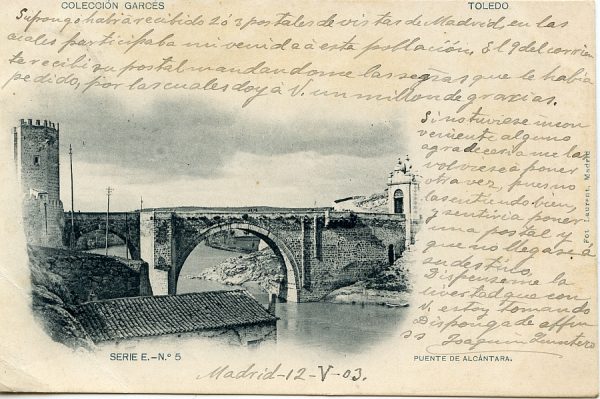 COLECCIÓN GARCÉS
TOLEDO
Supongo habrá recibido 2 ó 3 postales de vistas de Madrid, en las
cuales participaba mi venida á esta población. El 9 del corrien
te recibí su postal mandandome las señas que le habia
pedido, por las cuales doy á V. un millon de gracias.
Si no tuviese incon
veniente alguno
agradeceria me las
volviese á poner
otra vez, pues no
las entiendo bien,
y sentiria poner
una postal y
que no llegase á
su destino.
Dispenseme la
libertad que con
V. estoy tomando
Disponga de affmo
ss Joaquin
Fot. Laurent, Madrid
SERIE E.-N.º 5
PUENTE DE ALCÁNTARA.
Madrid-12-V-03.